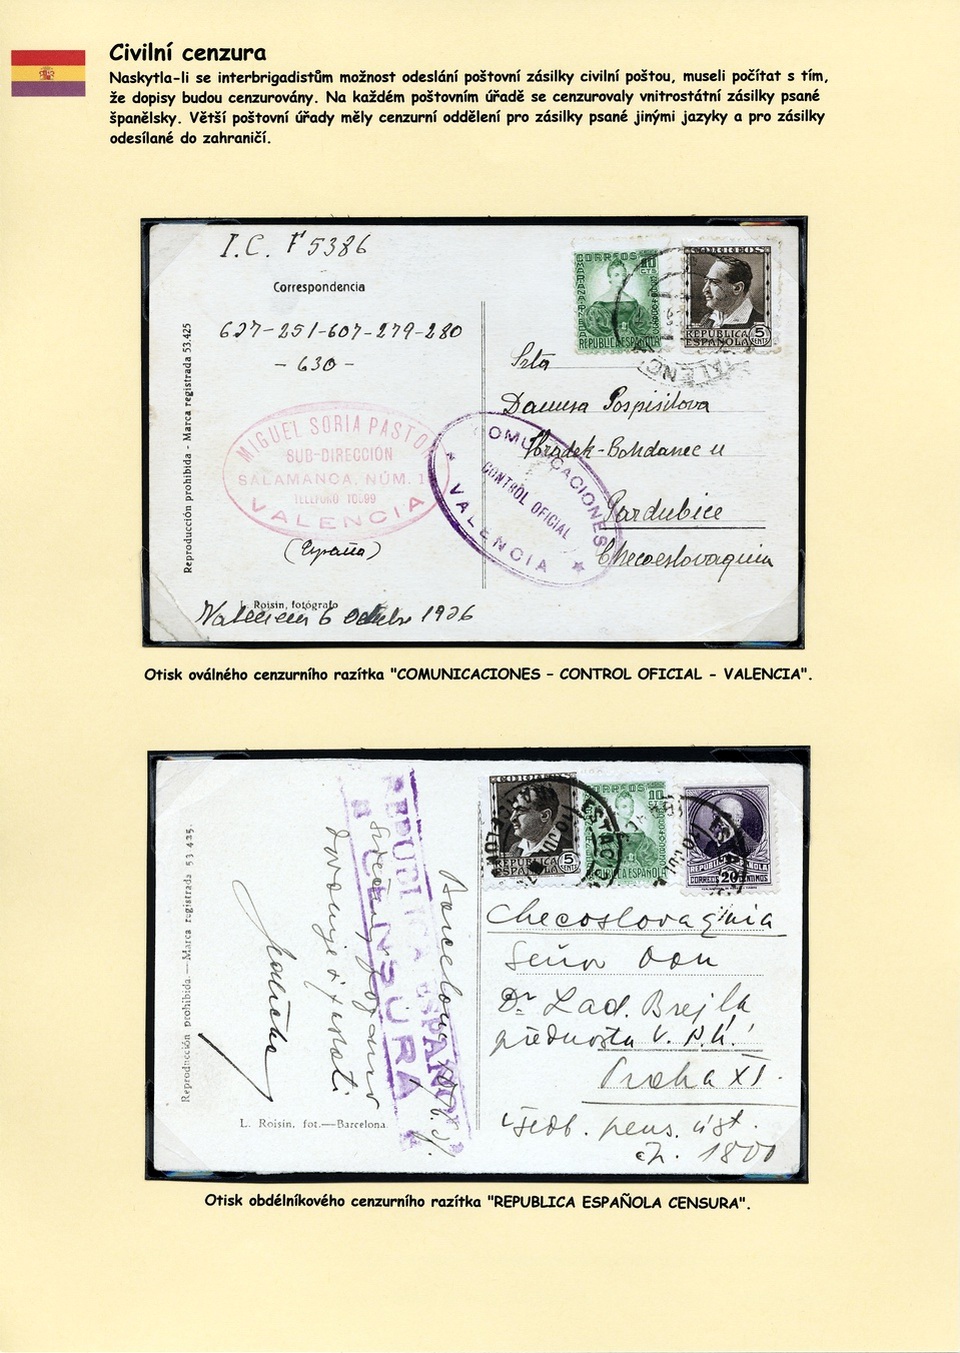 Civilní cenzura
Naskytla-li se interbrigadistům možnost odeslání poštovní zásilky civilní poštou, museli počítat s tím,
že dopisy budou cenzurovány. Na každém poštovním úřadě se cenzurovaly vnitrostátní zásilky psané
španělsky. Větší poštovní úřady měly cenzurní oddělení pro zásilky psané jinými jazyky a pro zásilky
odesílané do zahraničí.
I.C. F 5386
Correspondencia
627-251-607-279-280
-630-
Reproducción prohibida - Marca registrada 53.425
MIGUEL SORIA PASTOR
SUB-DIRECCIÓN
SALAMANCA, NÚM. 1
TELEFONO 10699
VALENCIA
(España)
L. Roisin, fotógrafo
6 1936
CORREOS
10 CTS
REPUBLICA ESPAÑOLA
CORREOS
REPUBLICA
ESPAÑOLA
5 CENTS
Srta
Danusa Pospisilova
Hradek-Bohdanec u
Pardubice
Checoeslovaquia
COMUNICACIONES
CONTROL OFICIAL
VALENCIA
Otisk oválného cenzurního razítka "COMUNICACIONES – CONTROL OFICIAL – VALENCIA".
Reproducción prohibida.—Marca registrada 53 425.
REPUBLICA ESPAÑOLA
CENSURA
Barcelona
L. Roisin, fot.—Barcelona
REPUBLICA
ESPAÑOLA
5 CENTS
CORREOS
10 CTS
REPUBLICA ESPAÑOLA
CORREOS 20 CENTIMOS
Checoslovaquia
Señor Don
Dr Lad. Brejla
přednosta V.p.ú.
Praha XI.
všeob. pens. úst.
čp. 1800
Otisk obdélníkového cenzurního razítka "REPUBLICA ESPAÑOLA CENSURA".